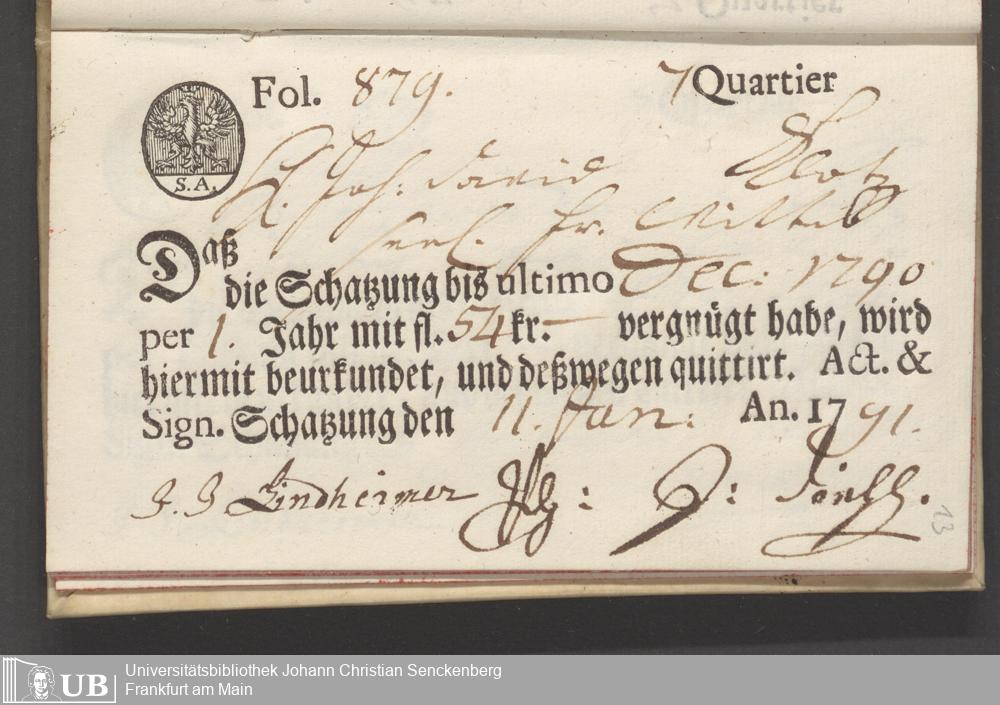 Fol. 879. 7 Quartier
S. A.
H. Joh: David Klotz
seel. Fr. Wittib
Daß
die Schatzung bis ultimo Dec: 1790
per 1. Jahr mit fl. 54 kr. — vergnügt habe, wird
hiermit beurkundet, und deßwegen quittirt. Act. &
Sign. Schatzung den 11. Jan: An. 1791.
J. J Lindheimer
13
UB
Universitätsbibliothek Johann Christian Senckenberg
Frankfurt am Main